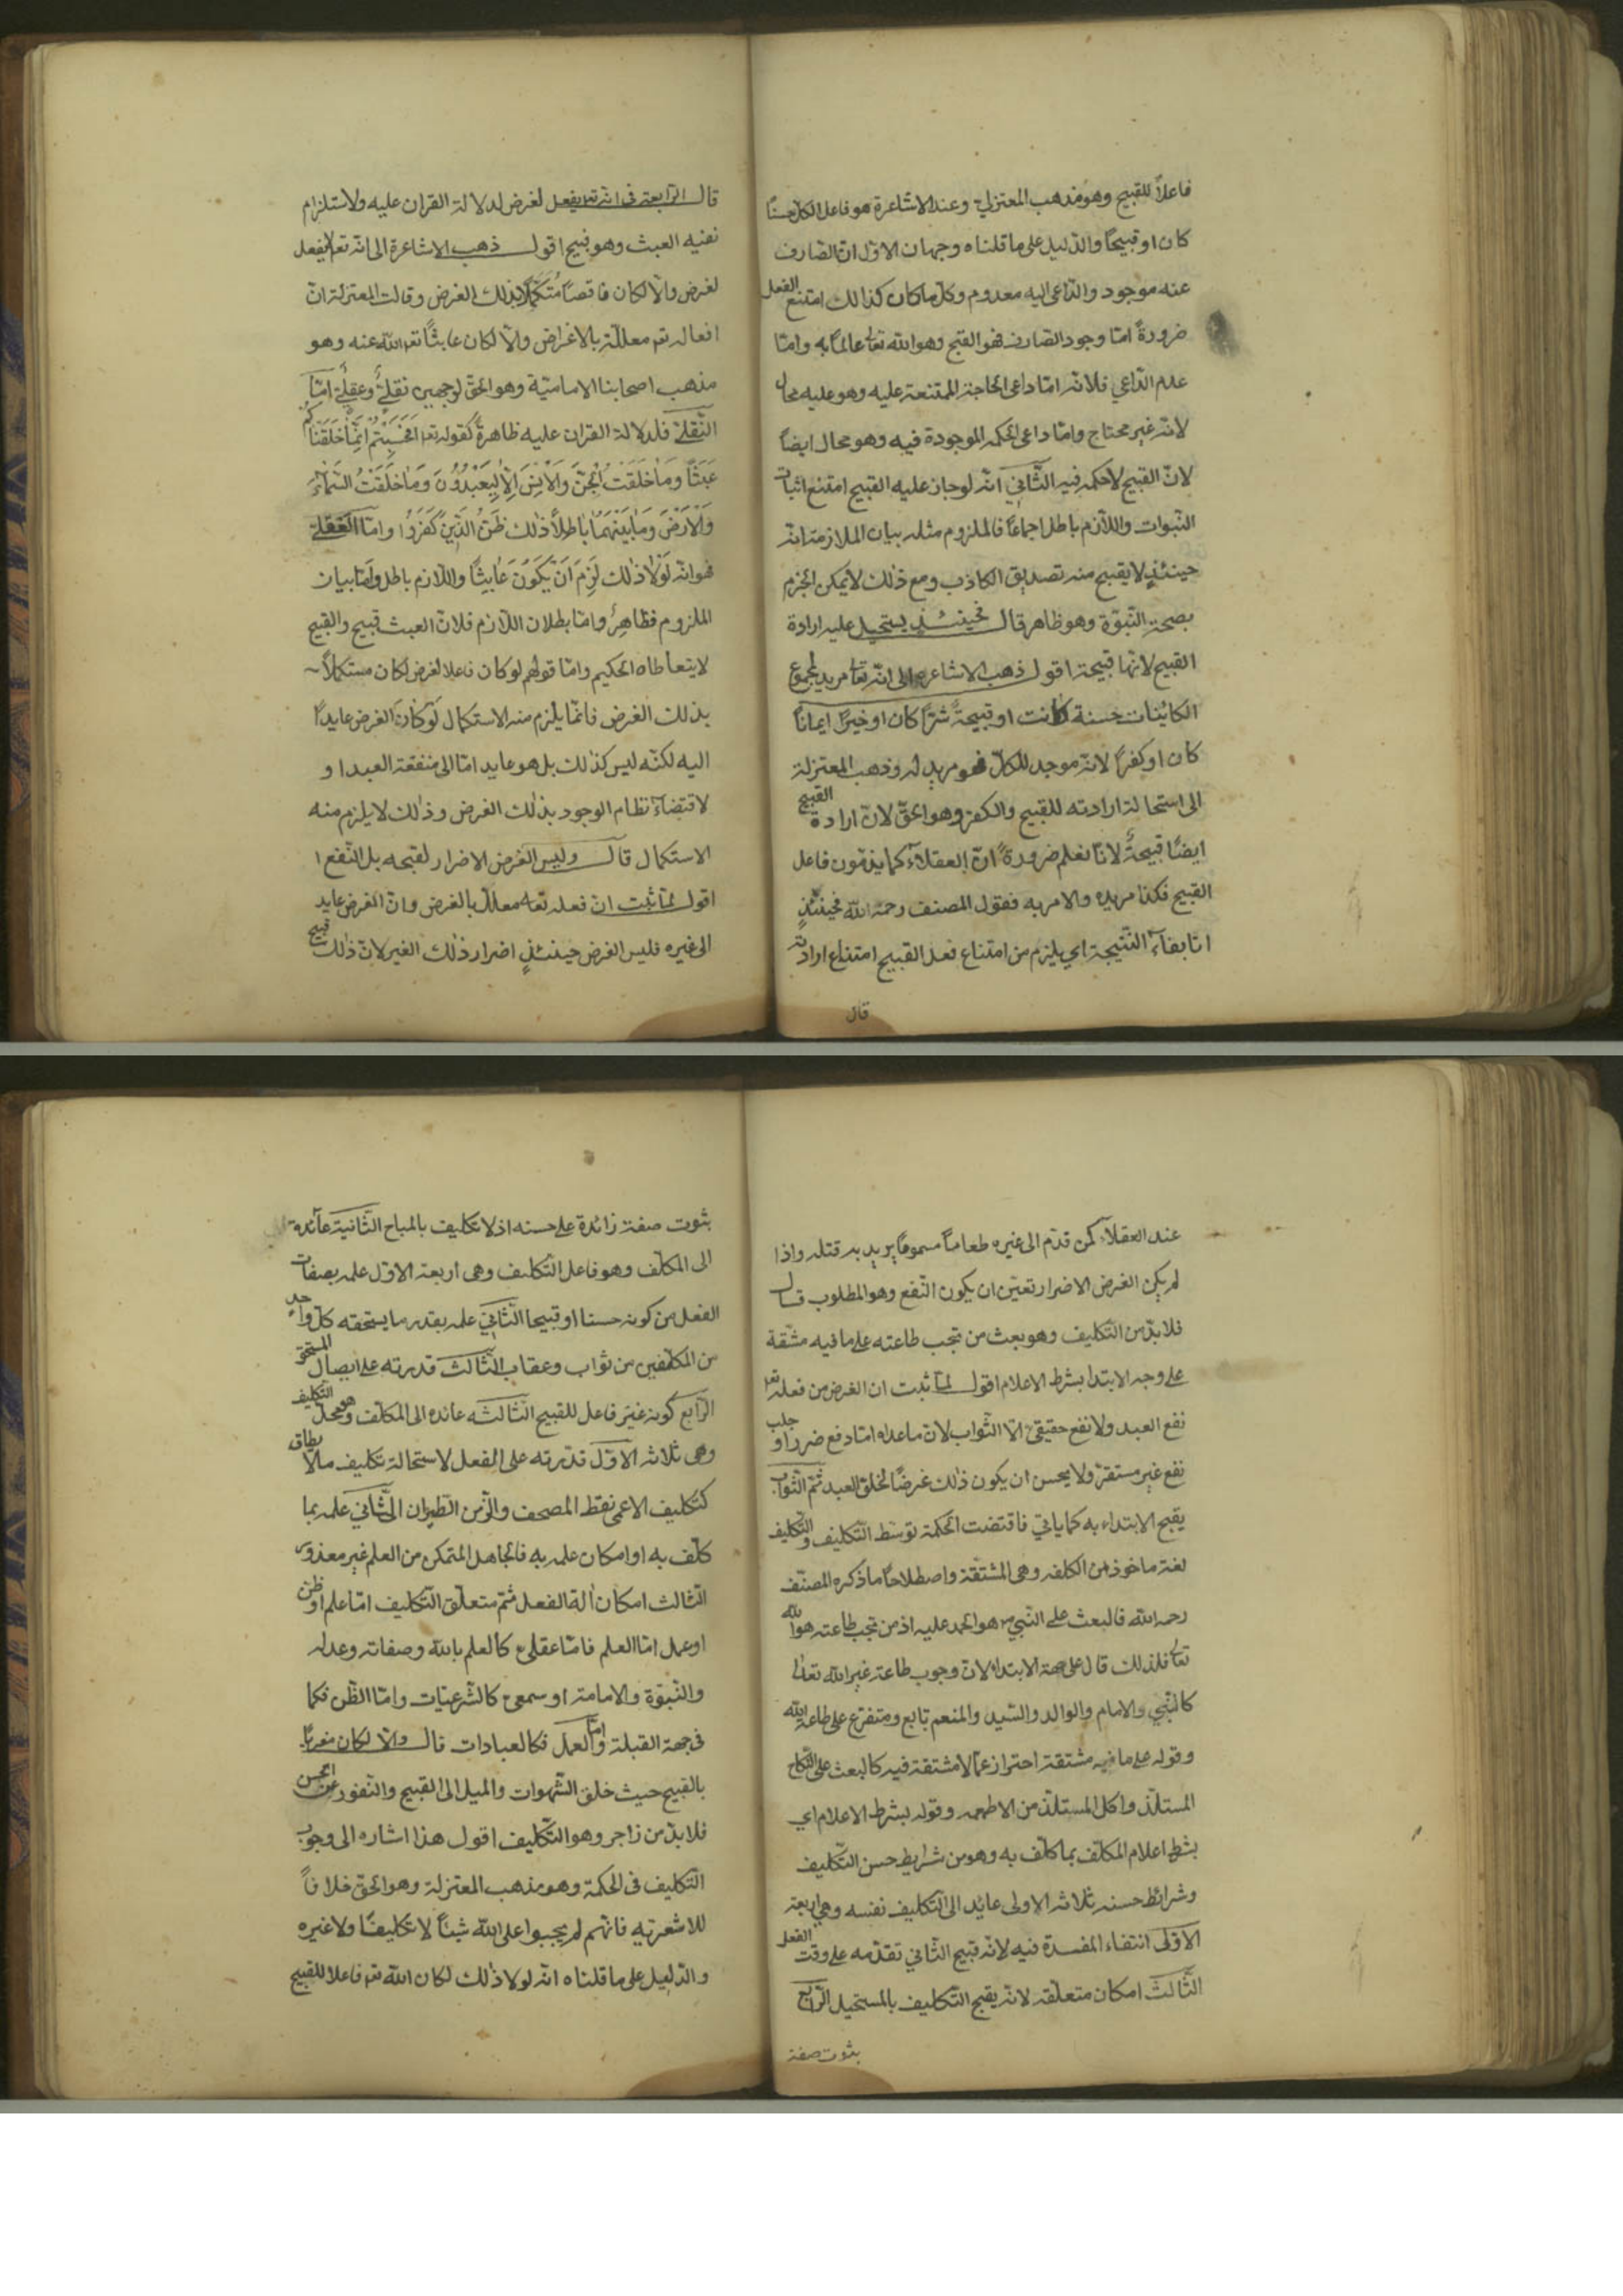 فاعلاً للقبيح وهو مذهب المعتزلة وعند الاشاعرة هو فاعل الكل حسنًا
كان او قبيحًا والدليل على ما قلناه وجهان الاوّل انّ الصّارف
عنه موجود والدّاعى اليه معدوم وكلّ ما كان كذالك امتنع الفعل
ضرورةً امّا وجود الصّارف فهو القبح وهو الله تعالى عالمًا به وامّا
عدم الدّاعي فلانّه امّا داعى الحاجة الممتنعة عليه وهو عليه محال
لانّه غير محتاج وامّا داعى الحكمة الموجودة فيه وهو محال ايضاً
لانّ القبيح لا حكمة فيه الثّاني انّه لو جاز عليه القبيح امتنع اثبات
النّبوات واللّازم باطل اجماعًا فالملزوم مثله بيان الملازمة انّه
حينئذٍ لا يقبح منه تصديق الكاذب ومع ذلك لا يمكن الجزم
بصحة النّبوّة وهو ظاهر قال فحينئذٍ يستحيل عليه ارادة
القبيح لانّها قبيحة اقول ذهب الاشاعرة الى انّه تعالى مريد لمجموع
الكاينات حسنة كانت او قبيحةً شرّا كان او خيرًا ايمانًا
كان او كفرًا لانّه موجد للكلّ فهو مريد له وذهب المعتزلة
الى استحالة ارادته للقبيح والكفر وهو الحقّ لانّ ارادة القبيح
ايضًا قبيحةٌ لانّا نعلم ضرورةً انّ العقلاء كما يذمّون فاعل
القبيح فكذا مريده والامر به فقول المصنف رحمة الله فحينئذٍ
اتا بفاء النّتيجة اى يلزم من امتناع فعل القبيح امتناع ارادته
قال
قال الرّابعة فى انّه تعالى يفعل لغرض لدلالة القران عليه ولاستلزام
نفيه العبث وهو قبيح اقول ذهب الاشاعرة الى انّه تعالى لا يفعل
لغرض والّا لكان ناقصًا مُتَكَمِّلًا بذلك الغرض وقالت المعتزلة انّ
افعاله تعم معلّلة بالاغراض والّا لكان عابثًا تعم الله عنه وهو
مذهب اصحابنا الاماميّة وهو الحقّ لوجهين نقليٌّ وعقليٌّ امّا
النّقليّ فلدلالة القران عليه ظاهرةً كقوله تعم افَحَسِبْتُمْ انَّمَا خَلَقْنَاكُم
عَبَثًا وَمَا خَلَقْتُ الْجِنَّ وَالْاِنْسَ اِلَّا لِيَعْبُدُوُنَ وَمَا خَلَقْتُ السَّمَاءَ
وَالْاَرْضَ وَمَا بَيْنَهُمَا بَاطِلًا ذلِكَ ظَنُّ الَّذِينَ كَفَرُوا وامّا العَقليّ
فهو انّه لَوْلَا ذلك لَزِمَ اَنْ يَكُوُنَ عَابِثًا واللّازم باطل وامّا بيان
الملزوم فظاهِرٌ وامّا بطلان اللّازم فلانّ العبث قبيح والقبيح
لا يتعاطاه الحكيم وامّا قولهم لو كان فاعلا لغرض لكان مستكملاً
بذلك الغرض فانّما يلزم منه الاستكمال لَوْ كَانَ الغرض عايدًا
اليه لكنّه ليس كذلك بل هو عايد امّا الى منفعة العبد او
لاقتضاء نظام الوجود بذلك الغرض وذلك لا يلزم منه
الاستكمال قال وليس الغرض الاضرار لقبحه بل النّفع ا
اقول لمّا ثبت انّ فعله تعم معلّل بالغرض وانّ الغرض عايد
الى غيره فليس الغرض حينئذٍ اضرار ذلك الغير لانّ ذلك قبيح
عند العقلاء كمن قدّم الى غيره طعاماً مسمومًا يريد به قتله واذا
لم يكن الغرض الاضرار تعيّن ان يكون النّفع وهو المطلوب قال
فلا بدّ من التّكليف وهو بعث من تجب طاعته على ما فيه مشقة
على وجه الابتدا بشرط الاعلام اقول لمّا ثبت ان الغرض من فعله تعم
نفع العبد ولا نفع حقيقىٌّ الّا الثّواب لانّ ما عداه امّا دفع ضرر او جلب
نفع غير مستقرّ ولا يحسن ان يكون ذلك غرضًا لخلق العبد ثمّ الثّواب
يقبح الابتداء به كما ياتي فاقتضت الحكمة توسّط التّكليف والتّكليف
لغة ماخوذ من الكلفه وهى المشقّة واصطلاحًا ما ذكره المصنّف
رحمه الله فالبعث على النّبيّ هو الحمد عليه اذ من تجب طاعته هو الله
تعالى فلذلك قال على جهة الابتداء لانّ وجوب طاعة غير الله تعالى
كالنّبي والامام والوالد والسّيد والمنعم تابع ومتفرّع على طاعة الله
وقوله على ما فيه مشتقة احتراز عمّا لا مشتقة فيه كالبعث على النّكاح
المستلذّ واكل المستلذّ من الاطعمه وقوله بشرط الاعلام اى
بشرط اعلام المكلّف بما كلّف به وهو من شرايط حسن التّكليف
وشرائط حسنه ثلاثه الاولى عائد الى التّكليف نفسه وهى اربعة
الاوّلى انتفاء المفسدة فيه لانّه قبيح الثّانى تقدّمه على وقت الفعل
الثّالث امكان متعلّقه لانّه يقبح التّكليف بالمستحيل الرّابع
بثوت صفة
بثوت صفة زائدة على حسنه اذ لا تكليف بالمباح الثّانية عآئدة
الى المكلّف وهو فاعل التّكليف وهى اربعة الاوّل علمه بصفات
الفعل من كونه حسنا او قبيحا الثّانيّ علمه بقدر ما يستحقه كلّ واحد
من المكلّفين من ثواب وعقاب الثّالث قدرته على ايصال المستحق
الرّابع كونه غير فاعل للقبيح الثّالثه عائده الى المكلّف وهو محلّ التّكليف
وهى ثلاثه الاوّل قدرته على الفعل لاستحالة تكليف مالا يطاق
كتكليف الاعمى نقط المصحف والزّمن الطّيران الثّاني علمه بما
كلّف به او امكان علمه به فالجاهل المتمكن من العلم غير معذور
الثّالث امكان آلة الفعل ثمّ متعلّق التّكليف امّا علم او ظن
او عمل امّا العلم فامّا عقلىّ كالعلم بالله وصفاته وعدله
والنّبوّة والامامة او سمعىّ كالشّرعيّات وامّا الظّن فكما
فى جهة القبلة وامّا العمل فكالعبادات قال والّا لكان مغريًا
بالقبيح حيث خلق الشّهوات والميل الى القبيح والنّفور عن الحسن
فلا بدّ من زاجر وهو التّكليف اقول هذا اشاره الى وجوب
التّكليف فى الحكمة وهو مذهب المعتزلة وهو الحقّ خلافاً
للاشعريّه فانّهم لم يجبوا على الله شيئًا لا تكليفًا ولا غيره
والدّليل على ما قلناه انّه لولا ذلك لكان الله تعم فاعلا للقبيح